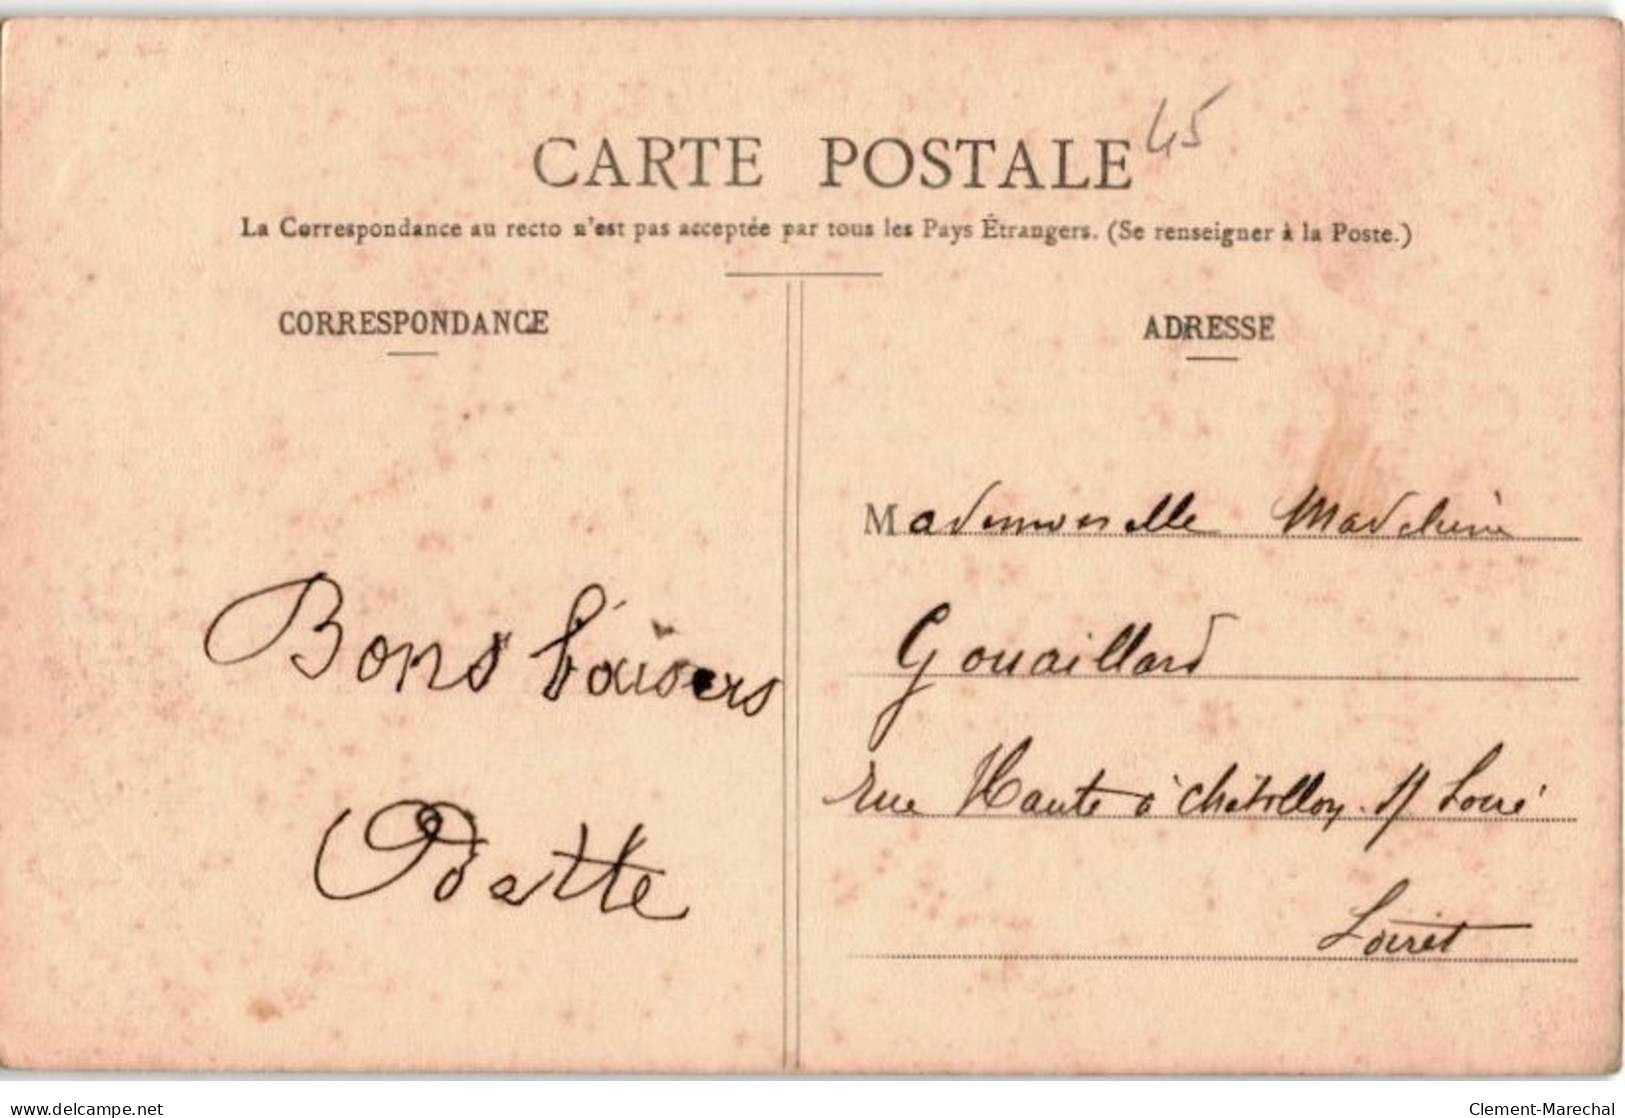 CARTE POSTALE 45
La Correspondance au recto n'est pas acceptée par tous les Pays Étrangers. (Se renseigner à la Poste.)
CORRESPONDANCE
ADRESSE
Bons baisers
Odette
Mademoiselle Madeleine
Gouaillard
rue Haute à Châtillon s/ Loire
Loiret
www.delcampe.net
Clement-Marechal